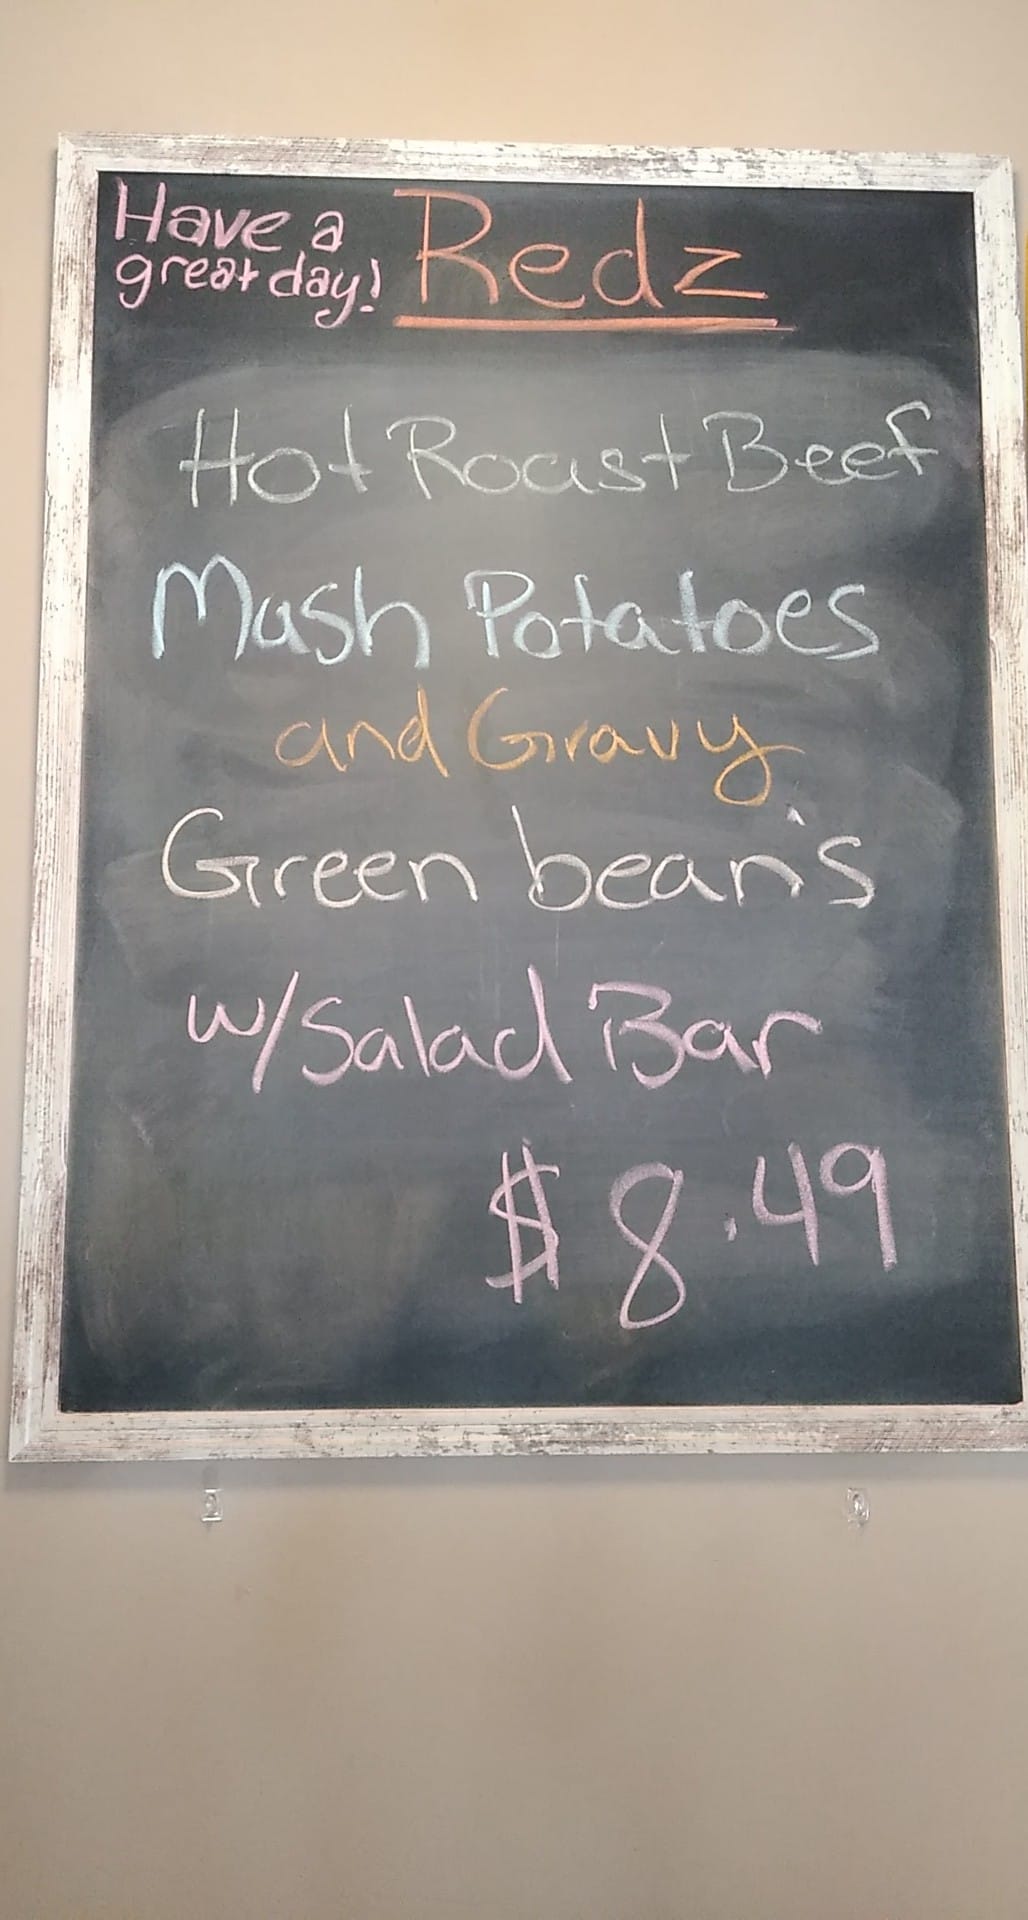 Have a
great day!
Redz
Hot Roast Beef
Mash Potatoes
and Gravy
Green bean's
w/Salad Bar
$8.49